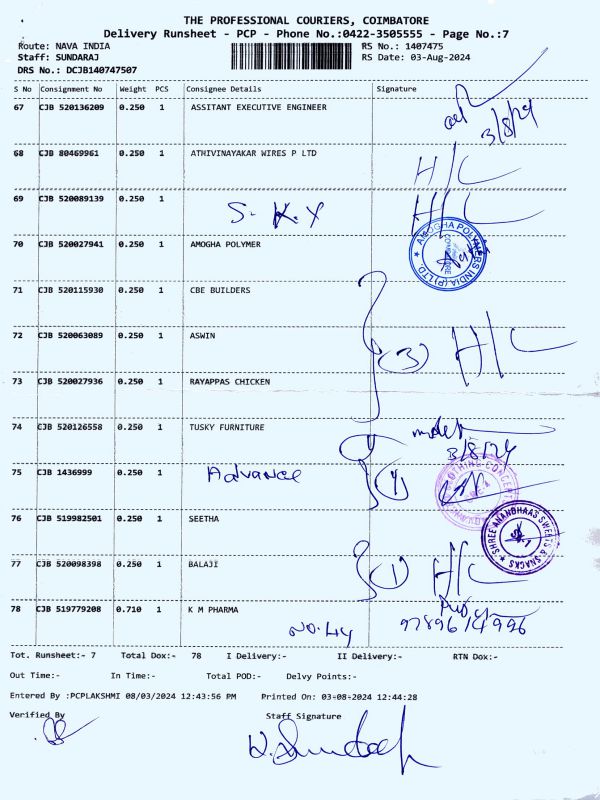 THE PROFESSIONAL COURIERS, COIMBATORE
Delivery Runsheet - PCP - Phone No.:0422-3505555 - Page No.:7
Route: NAVA INDIA RS No.: 1407475
Staff: SUNDARAJ RS Date: 03-Aug-2024
DRS No.: DCJB140747507
S No Consignment No Weight PCS Consignee Details Signature
67 CJB 520136209 0.250 1 ASSITANT EXECUTIVE ENGINEER
3/8/24
68 CJB 80469961 0.250 1 ATHIVINAYAKAR WIRES P LTD H/C
69 CJB 520089139 0.250 1 S. K. Y H/C
70 CJB 520027941 0.250 1 AMOGHA POLYMER AMOGHA POLYMERS INDIA (P) LTD. COIMBATORE
71 CJB 520115930 0.250 1 CBE BUILDERS
72 CJB 520063089 0.250 1 ASWIN (3) H/C
73 CJB 520027936 0.250 1 RAYAPPAS CHICKEN
74 CJB 520126558 0.250 1 TUSKY FURNITURE
3/8/24
75 CJB 1436999 0.250 1 Advance
76 CJB 519982501 0.250 1 SEETHA SHREE ANANDHAAS SWEETS & SNACKS
77 CJB 520098398 0.250 1 BALAJI (1) H/C
78 CJB 519779208 0.710 1 K M PHARMA
NO: 44 9789614996
Tot. Runsheet:- 7 Total Dox:- 78 I Delivery:- II Delivery:- RTN Dox:-
Out Time:- In Time:- Total POD:- Delvy Points:-
Entered By :PCPLAKSHMI 08/03/2024 12:43:56 PM Printed On: 03-08-2024 12:44:28
Verified By Staff Signature